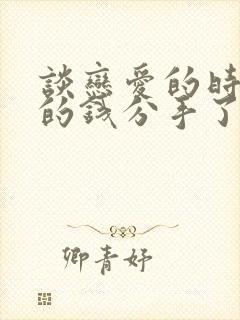 談戀愛的時
的錢分手了
卿青妤